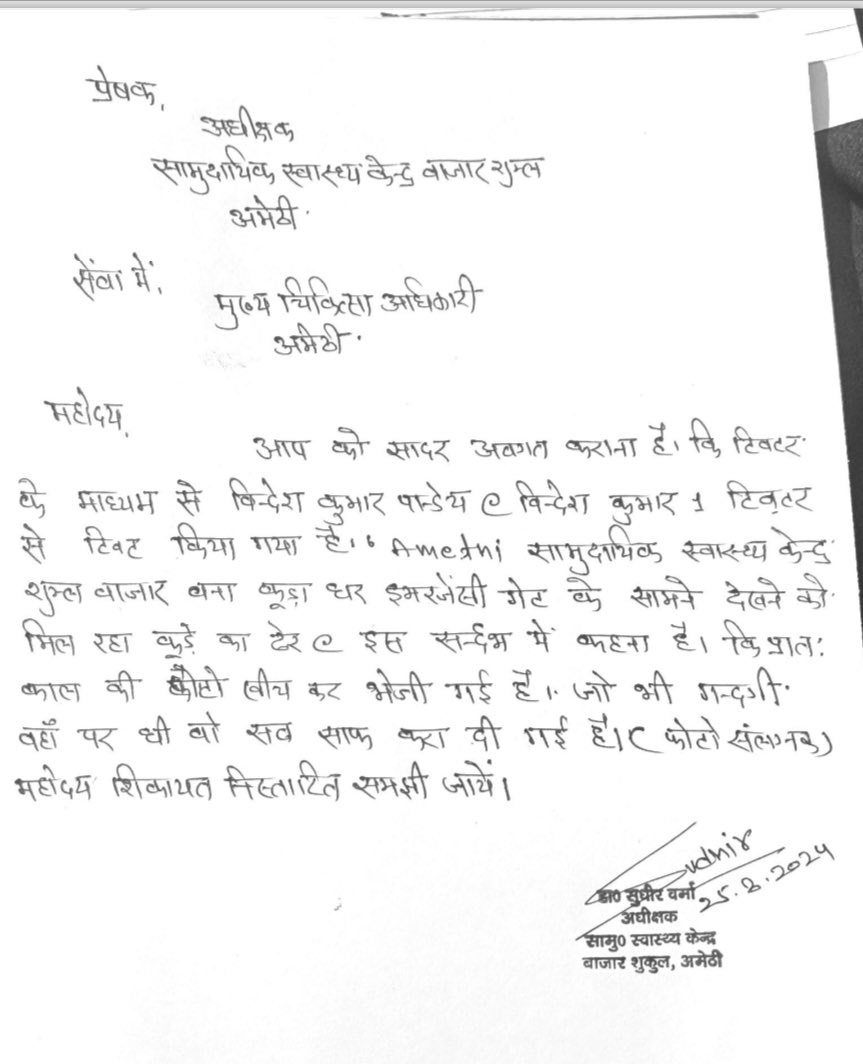 प्रेषक,
अधीक्षक
सामुदायिक स्वास्थ्य केन्द्र बाजार शुक्ल
अमेठी.
सेंवा में,
मुख्य चिकित्सा अधिकारी
अमेठी.
महोदय,
आप को सादर अवगत कराना है। कि टिवटर
के माध्यम से विन्देश कुमार पान्डेय @ विन्देश कुमार 1 टिवटर
से टिवट किया गया है। " Amethi सामुदायिक स्वास्थ्य केन्द्र
शुक्ल बाजार बना कूड़ा घर इमरजेंसी गेट के सामने देखने को
मिल रहा कूड़े का ढेर @ इस सर्न्दभ में कहना है। कि प्रात:
काल की फोटो खीच कर भेजी गई है। जो भी गन्दगी
वहाँ पर थी वो सब साफ करा दी गई है। ( फोटो संलग्नक )
महोदय शिकायत निस्तारित समझी जायें।
Sudhir
25.8.2024
डा० सुधीर वर्मा
अधीक्षक
सामु० स्वास्थ्य केन्द्र
बाजार शुकुल, अमेठी